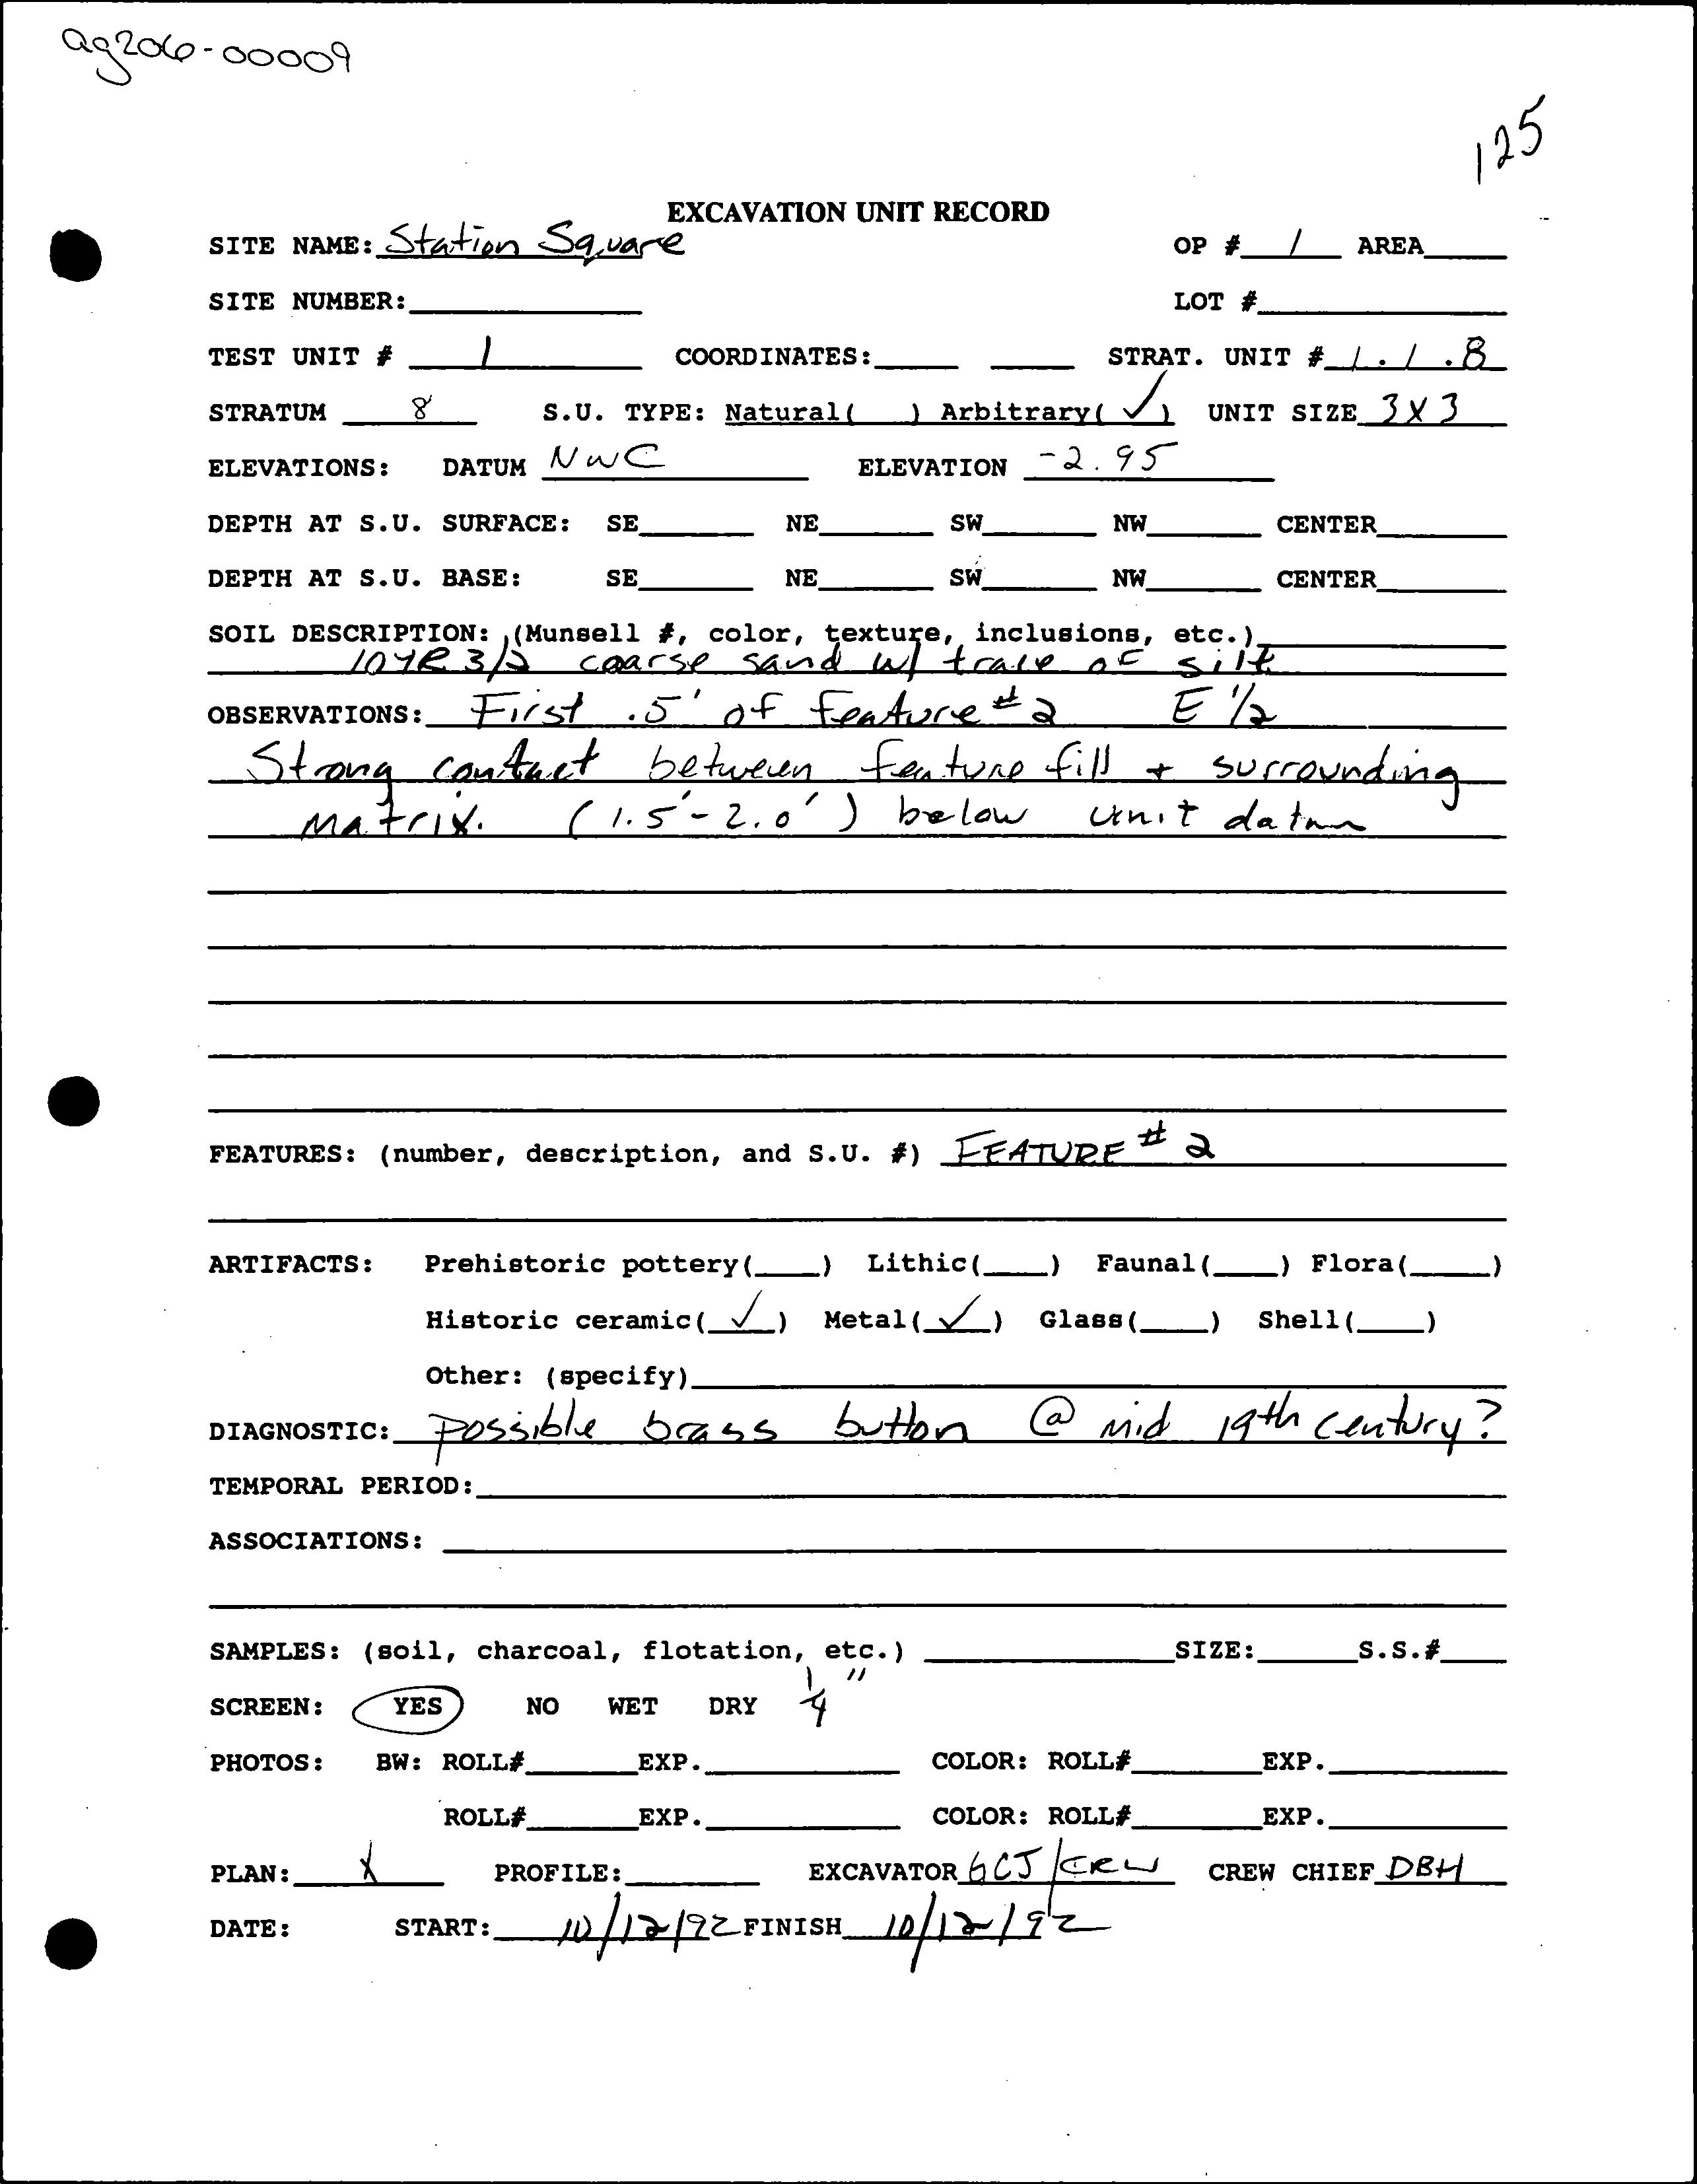 ag206-00009
125
EXCAVATION UNIT RECORD
SITE NAME: Station Square OP # 1 AREA
SITE NUMBER: LOT #
TEST UNIT # 1 COORDINATES: STRAT. UNIT # 1.1.8
STRATUM 8 S.U. TYPE: Natural( ) Arbitrary( ✓ ) UNIT SIZE 3 X 3
ELEVATIONS: DATUM NWC ELEVATION -2.95
DEPTH AT S.U. SURFACE: SE NE SW NW CENTER
DEPTH AT S.U. BASE: SE NE SW NW CENTER
SOIL DESCRIPTION: (Munsell #, color, texture, inclusions, etc.)
10YR 3/2 coarse sand w/ trace of silt
OBSERVATIONS: First .5' of feature #2 E 1/2
Strong contact between feature fill + surrounding
Matrix. (1.5'-2.0') below unit datum
FEATURES: (number, description, and S.U. #) FEATURE # 2
ARTIFACTS: Prehistoric pottery(____) Lithic(____) Faunal(____) Flora(____)
Historic ceramic( ✓ ) Metal( ✓ ) Glass(____) Shell(____)
Other: (specify)
DIAGNOSTIC: possible brass button @ mid 19th century?
TEMPORAL PERIOD:
ASSOCIATIONS:
SAMPLES: (soil, charcoal, flotation, etc.) SIZE: S.S.#
SCREEN: YES NO WET DRY 1/4"
PHOTOS: BW: ROLL# EXP. COLOR: ROLL# EXP.
ROLL# EXP. COLOR: ROLL# EXP.
PLAN: X PROFILE: EXCAVATOR GCJ/CRW CREW CHIEF DBH
DATE: START: 10/12/92 FINISH 10/12/92